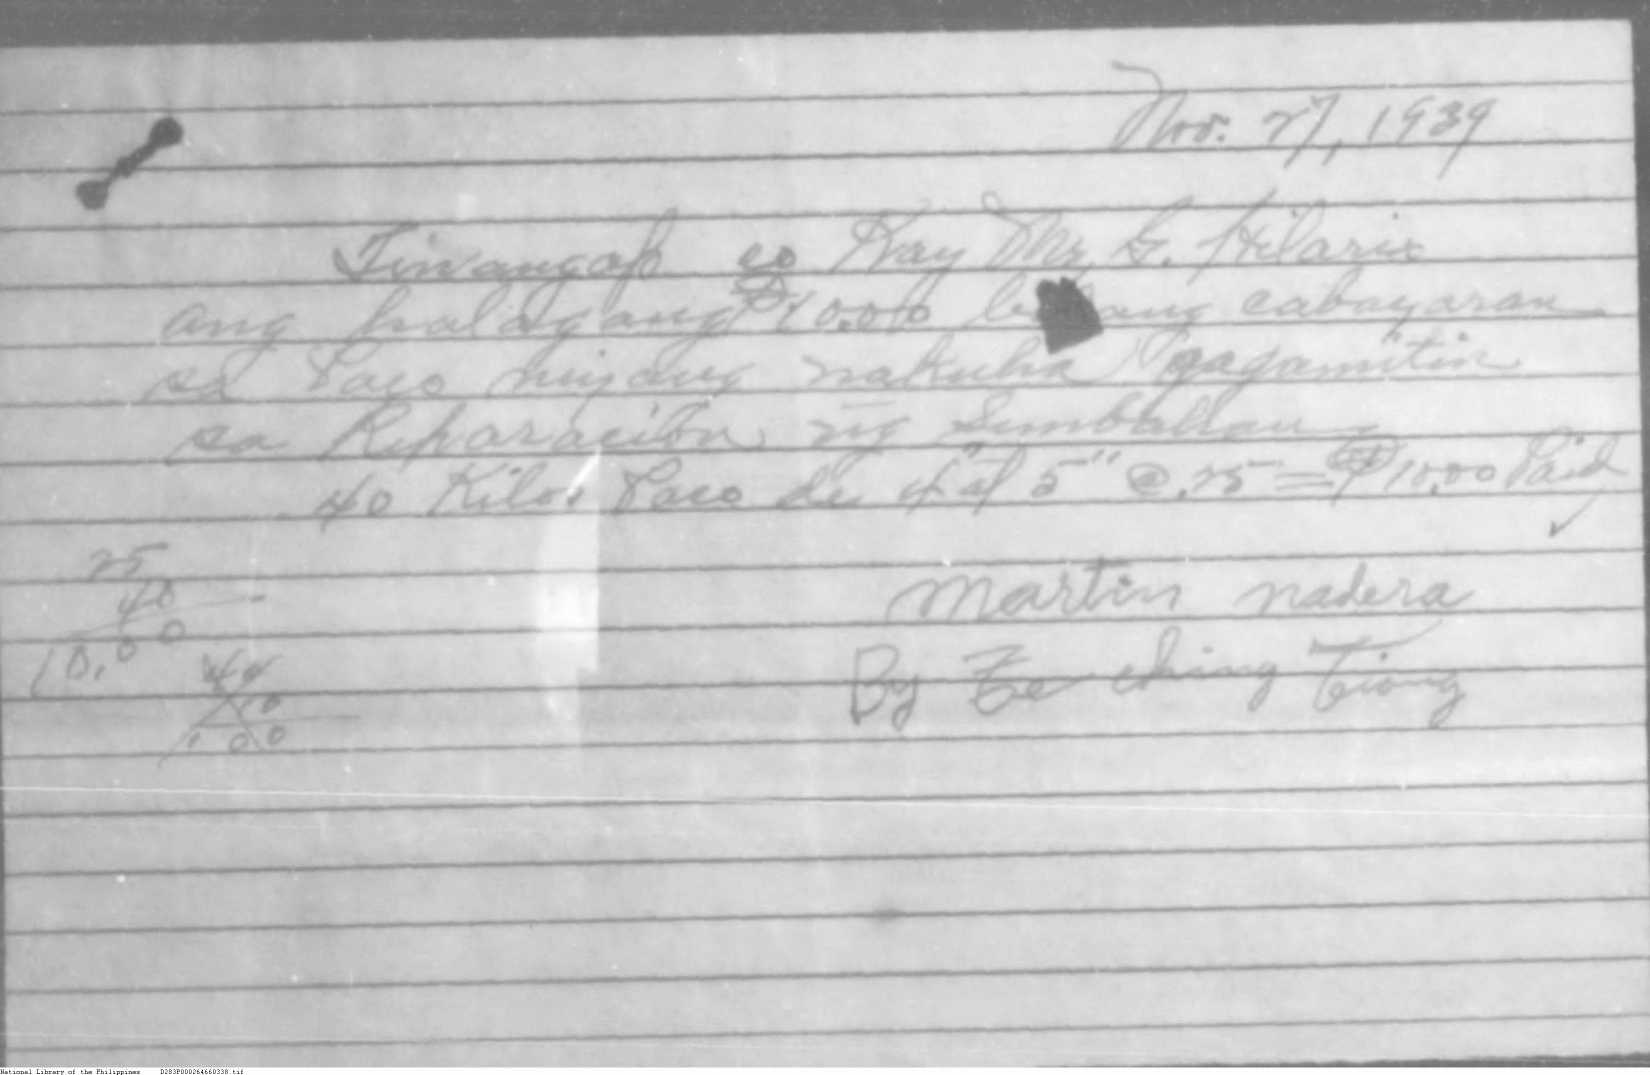 Nov. 27, 1939
Tinangap co Kay Mr. G. Hilario
ang halagang ₱10.00 cabayaran
sa Paco niyang nakuha gagamitin
sa Reparacion ng Simbahan
40 Kilos Paco de 4" y 5" @ .25 = ₱10.00 Paid
25
40
10.00
44
10
100
Martin Nadera
By Te Ching Tiong
National Library of the Philippines D283P000264660338.tif